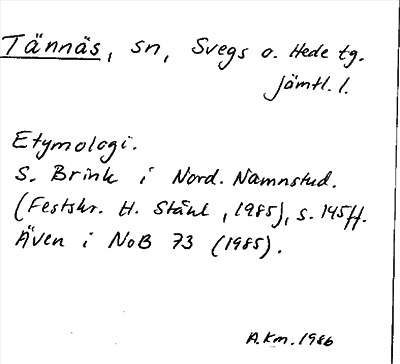 Tännäs, sn, Svegs o. Hede tg.
Jämtl. l.
Etymologi.
S. Brink i Nord. Namnstud.
(Festskr. H. Ståhl, 1985), s. 145ff.
Även i NoB 73 (1985).
A.Km. 1986